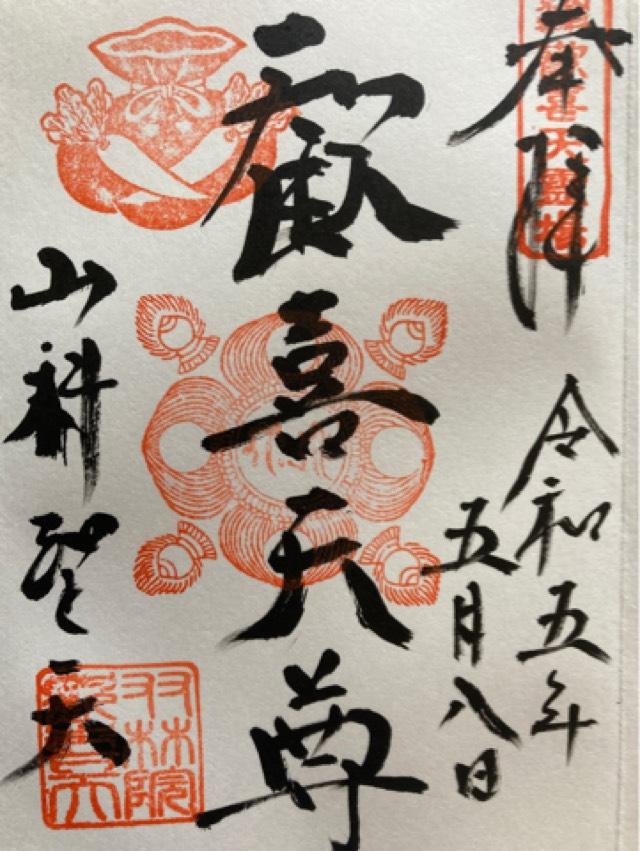 奉拝
令和五年
五月八日
歓喜天尊
山科聖天
歓喜天霊場
双林院